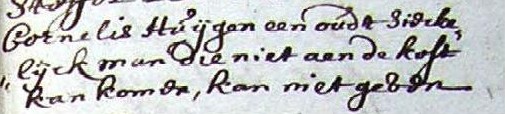 Cornelis Huijgen een oudt Siecke„
„lijck man die niet aen de kost
kan komen, kan niet geven